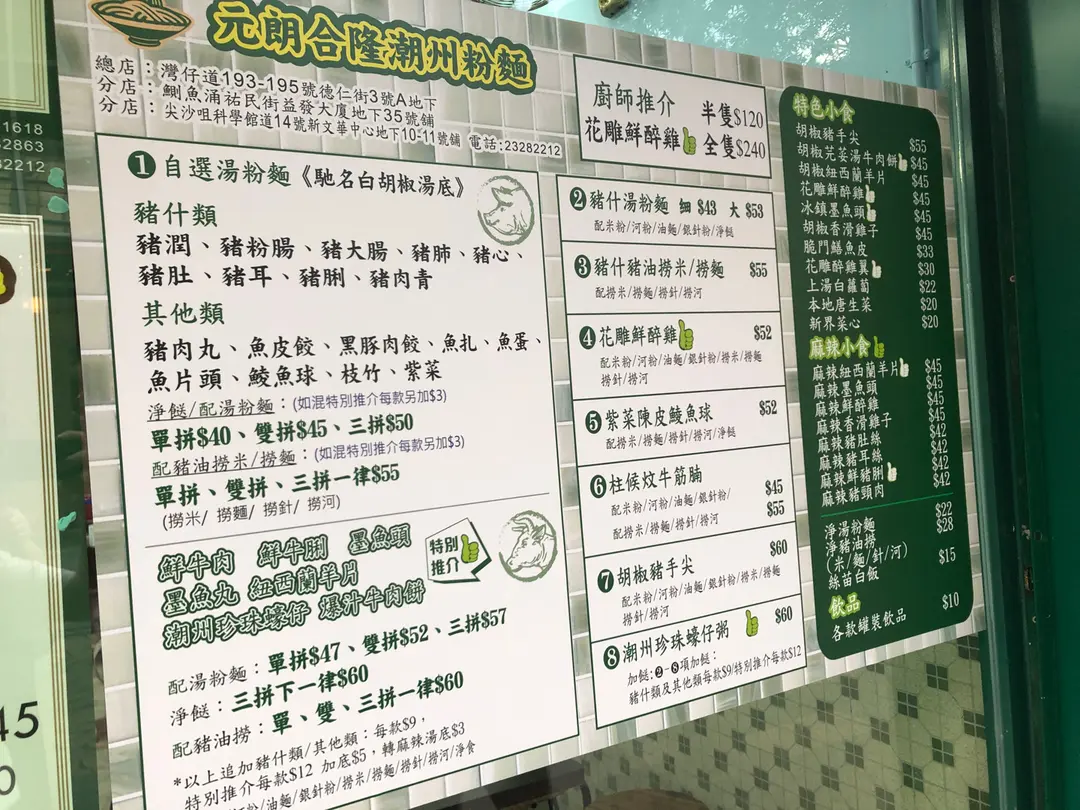 元朗合隆潮州粉麵
總店：灣仔道193-195號德仁街3號A地下
分店：鰂魚涌祐民街益發大廈地下35號舖
分店：尖沙咀科學館道14號新文華中心地下10-11號舖 電話:23282212
1618
2863
2212
❶自選湯粉麵《馳名白胡椒湯底》
豬什類
豬潤、豬粉腸、豬大腸、豬肺、豬心、
豬肚、豬耳、豬脷、豬肉青
其他類
豬肉丸、魚皮餃、黑豚肉餃、魚扎、魚蛋、
魚片頭、鯪魚球、枝竹、紫菜
淨餸/配湯粉麵：(如混特別推介每款另加$3)
單拼$40、雙拼$45、三拼$50
配豬油撈米/撈麵：(如混特別推介每款另加$3)
單拼、雙拼、三拼一律$55
(撈米/ 撈麵/ 撈針/ 撈河)
鮮牛肉 鮮牛脷 墨魚頭
墨魚丸 紐西蘭羊片
潮州珍珠蠔仔 爆汁牛肉餅
特別
推介
配湯粉麵：單拼$47、雙拼$52、三拼$57
淨餸：三拼下一律$60
配豬油撈：單、雙、三拼一律$60
*以上追加豬什類/其他類：每款$9，
特別推介每款$12 加底$5，轉麻辣湯底$3
粉/油麵/銀針粉/撈米/撈麵/撈針/撈河/淨食
廚師推介 半隻$120
花雕鮮醉雞 全隻$240
❷豬什湯粉麵 細 $43 大 $53
配米粉/河粉/油麵/銀針粉/淨餸
❸豬什豬油撈米/撈麵 $55
配撈米/撈麵/撈針/撈河
❹花雕鮮醉雞 $52
配米粉/河粉/油麵/銀針粉/撈米/撈麵
撈針/撈河
❺紫菜陳皮鯪魚球 $52
配撈米/撈麵/撈針/撈河/淨餸
❻柱候炆牛筋腩
配米粉/河粉/油麵/銀針粉/ $45
配撈米/撈麵/撈針/撈河 $55
❼胡椒豬手尖 $60
配米粉/河粉/油麵/銀針粉/撈米/撈麵
撈針/撈河
❽潮州珍珠蠔仔粥 $60
加餸:❷-❽項加餸：
豬什類及其他類每款$9/特別推介每款$12
特色小食
胡椒豬手尖 $55
胡椒芫荽湯牛肉餅 $45
胡椒紐西蘭羊片 $45
花雕鮮醉雞 $45
冰鎮墨魚頭 $45
胡椒香滑雞子 $45
脆鬥鱔魚皮 $33
花雕醉雞翼 $30
上湯白蘿蔔 $22
本地唐生菜 $20
新界菜心 $20
麻辣小食
麻辣紐西蘭羊片 $45
麻辣墨魚頭 $45
麻辣鮮醉雞 $45
麻辣香滑雞子 $45
麻辣豬肚絲 $42
麻辣豬耳絲 $42
麻辣鮮豬脷 $42
麻辣豬頭肉 $42
淨湯粉麵 $22
淨豬油撈 $28
(米/麵/針/河)
絲苗白飯 $15
飲品
各款罐裝飲品 $10
45
0